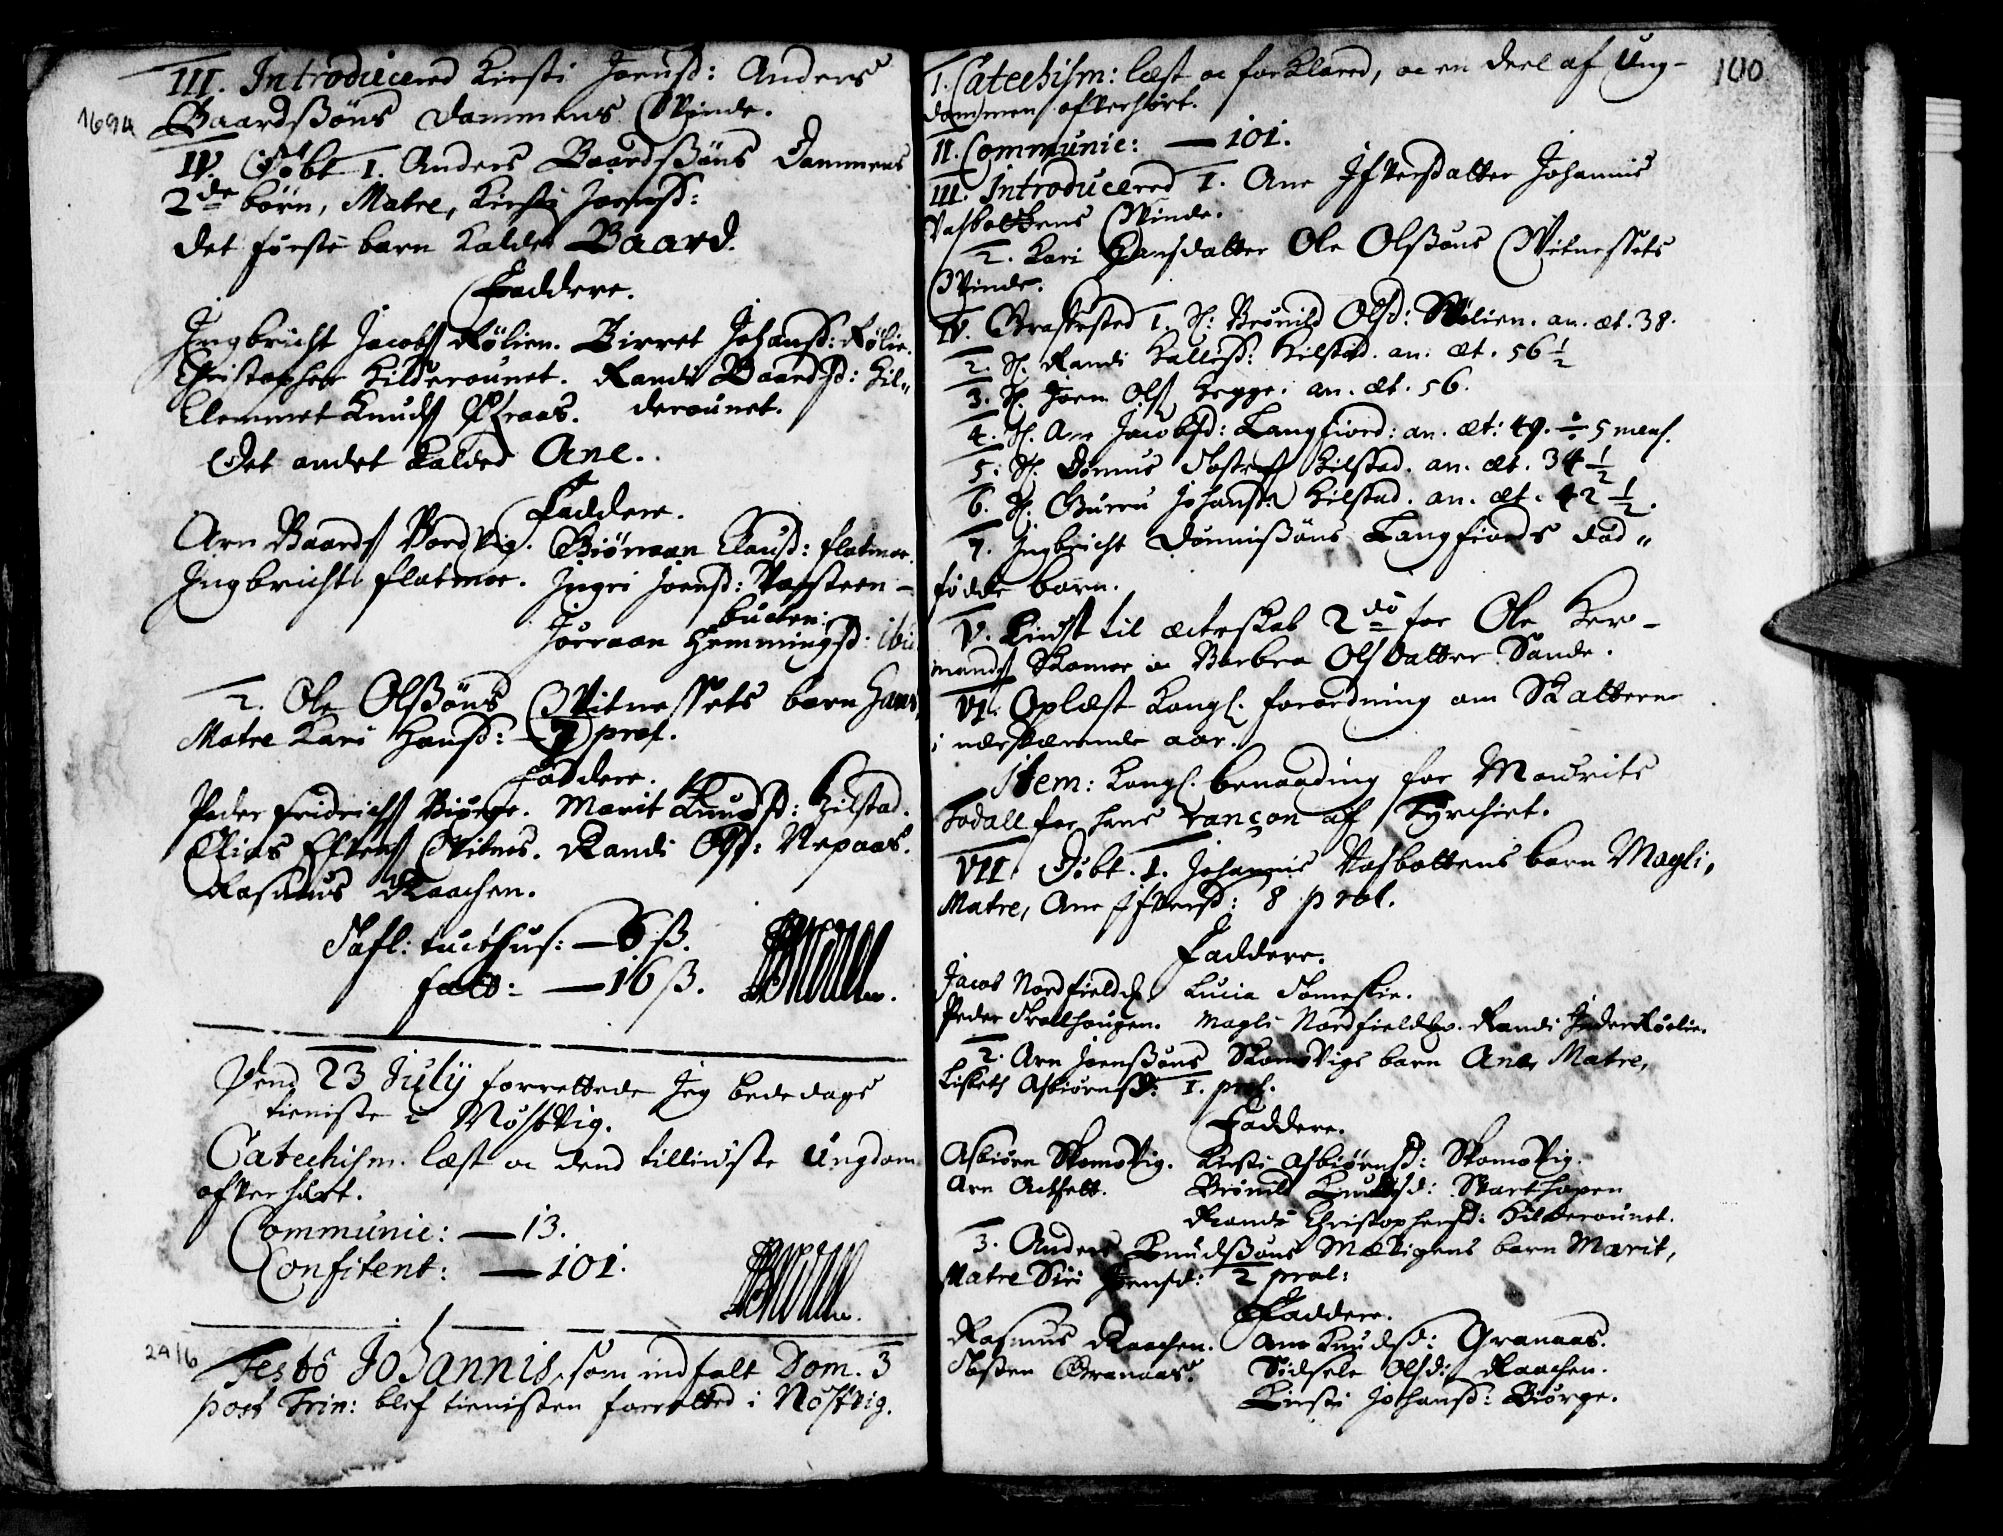 1694
III. Introducered Kirsti Joensd: Anders
Baardssøns Dammens Qvinde.
IV. Døbt 1. Anders Baardssøns Dammens
2de børn, Matre, Kirsti Joensd:
det første barn kaldet Baard.
Faddere.
Ingbricht Jacobs RøLien. Birret Johansd: Rølie.
Christopher Kilderounet. Randi Baardsd: Kil„
Clemmet Knuds Aaraas. derounet.
Det andet kalded Ane.
Faddere.
Arn Baards Nordvig. Giøraan Clausd: flatmoe.
Ingbricht flatmoe. Ingri Joensd: Vassteen-
bucten:
Jørraan Hemmingsd: ibid
2. Ole Olssøns Qvitnessets barn Hans,
Matre Kari Hansd: 7 prof.
Faddere.
Peder Fridrichs Biørge. Marit Knudsd: Hilstad.
Elias Efvens Qvitnes. Randi Olsd: Nepaas.
Rasmus Raachen.
Tafl: tuchthus: — 6 ß.
fatt: — 16 ß.
Dend 23 July forrettede Jeg bededags
tieniste i Nøstvig.
Catechism. læst oc dend tilliuste Ungdom
ofverhørt.
Communic: — 13.
Confitent: — 101.
24/6
Festo Johannis, som indfalt Dom. 3
post Trin: blef tienisten forretted i Nøstvig.
100
I. Catechism: læst oc forklared, oc en deel af Ung-
dommen ofverhørt.
II. Communic: — 101.
III. Introducered 1. Ane Ifversdatter Johannis
Vasbottens Qvinde.
2. Kari Hansdatter Ole Olssøns Qvitnessets
Qvinde.
IV. Graffested 1. S: Brønild Olsd: Mølien. an. æt. 38.
2. S. Randi Hallesd: Hilstad. an. æt. 56 ½
3. S. Joen Ols Hegge. an. æt. 56.
4. S. Ane Jacobsd: Langfiord: an. æt: 49. ÷ 5 mens.
5. S. Tønnis Tosten Hilstad. an. æt. 34 ½
6. S. Gurru Johansd: Hilstad. an. æt. 42 ½.
7. Ingbricht Tønnissøns Langfiords død„
fødde barn.
V. Liust til ecteskab 2do for Ole Her-
mands Skomoe oc Barbra Olsdatter Sande.
VI. Oplæst Kongl. forordning om Skatterne
i nærværende aar.
Item: Kongl. benaading for Mourits
Todall for hans rançon af Tyrchiet.
VII. Døbt. 1. Johannis Vasbottens barn Magli,
Matre, Ane Ifversd: 8 prol.
Faddere.
Jacob Nordfieldet. Lucia Tomeslie.
Peder Trollhougen. Magli Nordfieldet. Randi InderRøelie.
2. Arn Joenssøns Skomsvigs barn Ane, Matre,
Lisbeth Asbiørnsd: 1. prol.
Faddere.
Asbiørn Skomsvig. Kirsti Asbiørnsd: Skomsvig.
Arn Achselt. Brønild Knudsd: Svarthopen
Randi Christophersd: Kilderounet.
3. Anders Knudssøns Mælvigens barn Marit,
Matre Siri Joensd: 2 prol:
Faddere.
Rasmus Raachen. Ane Knudsd: Granaas.
Tosten Granaas. Sidsele Olsd: Raachen.
Kirsti Johansd: Biørge.